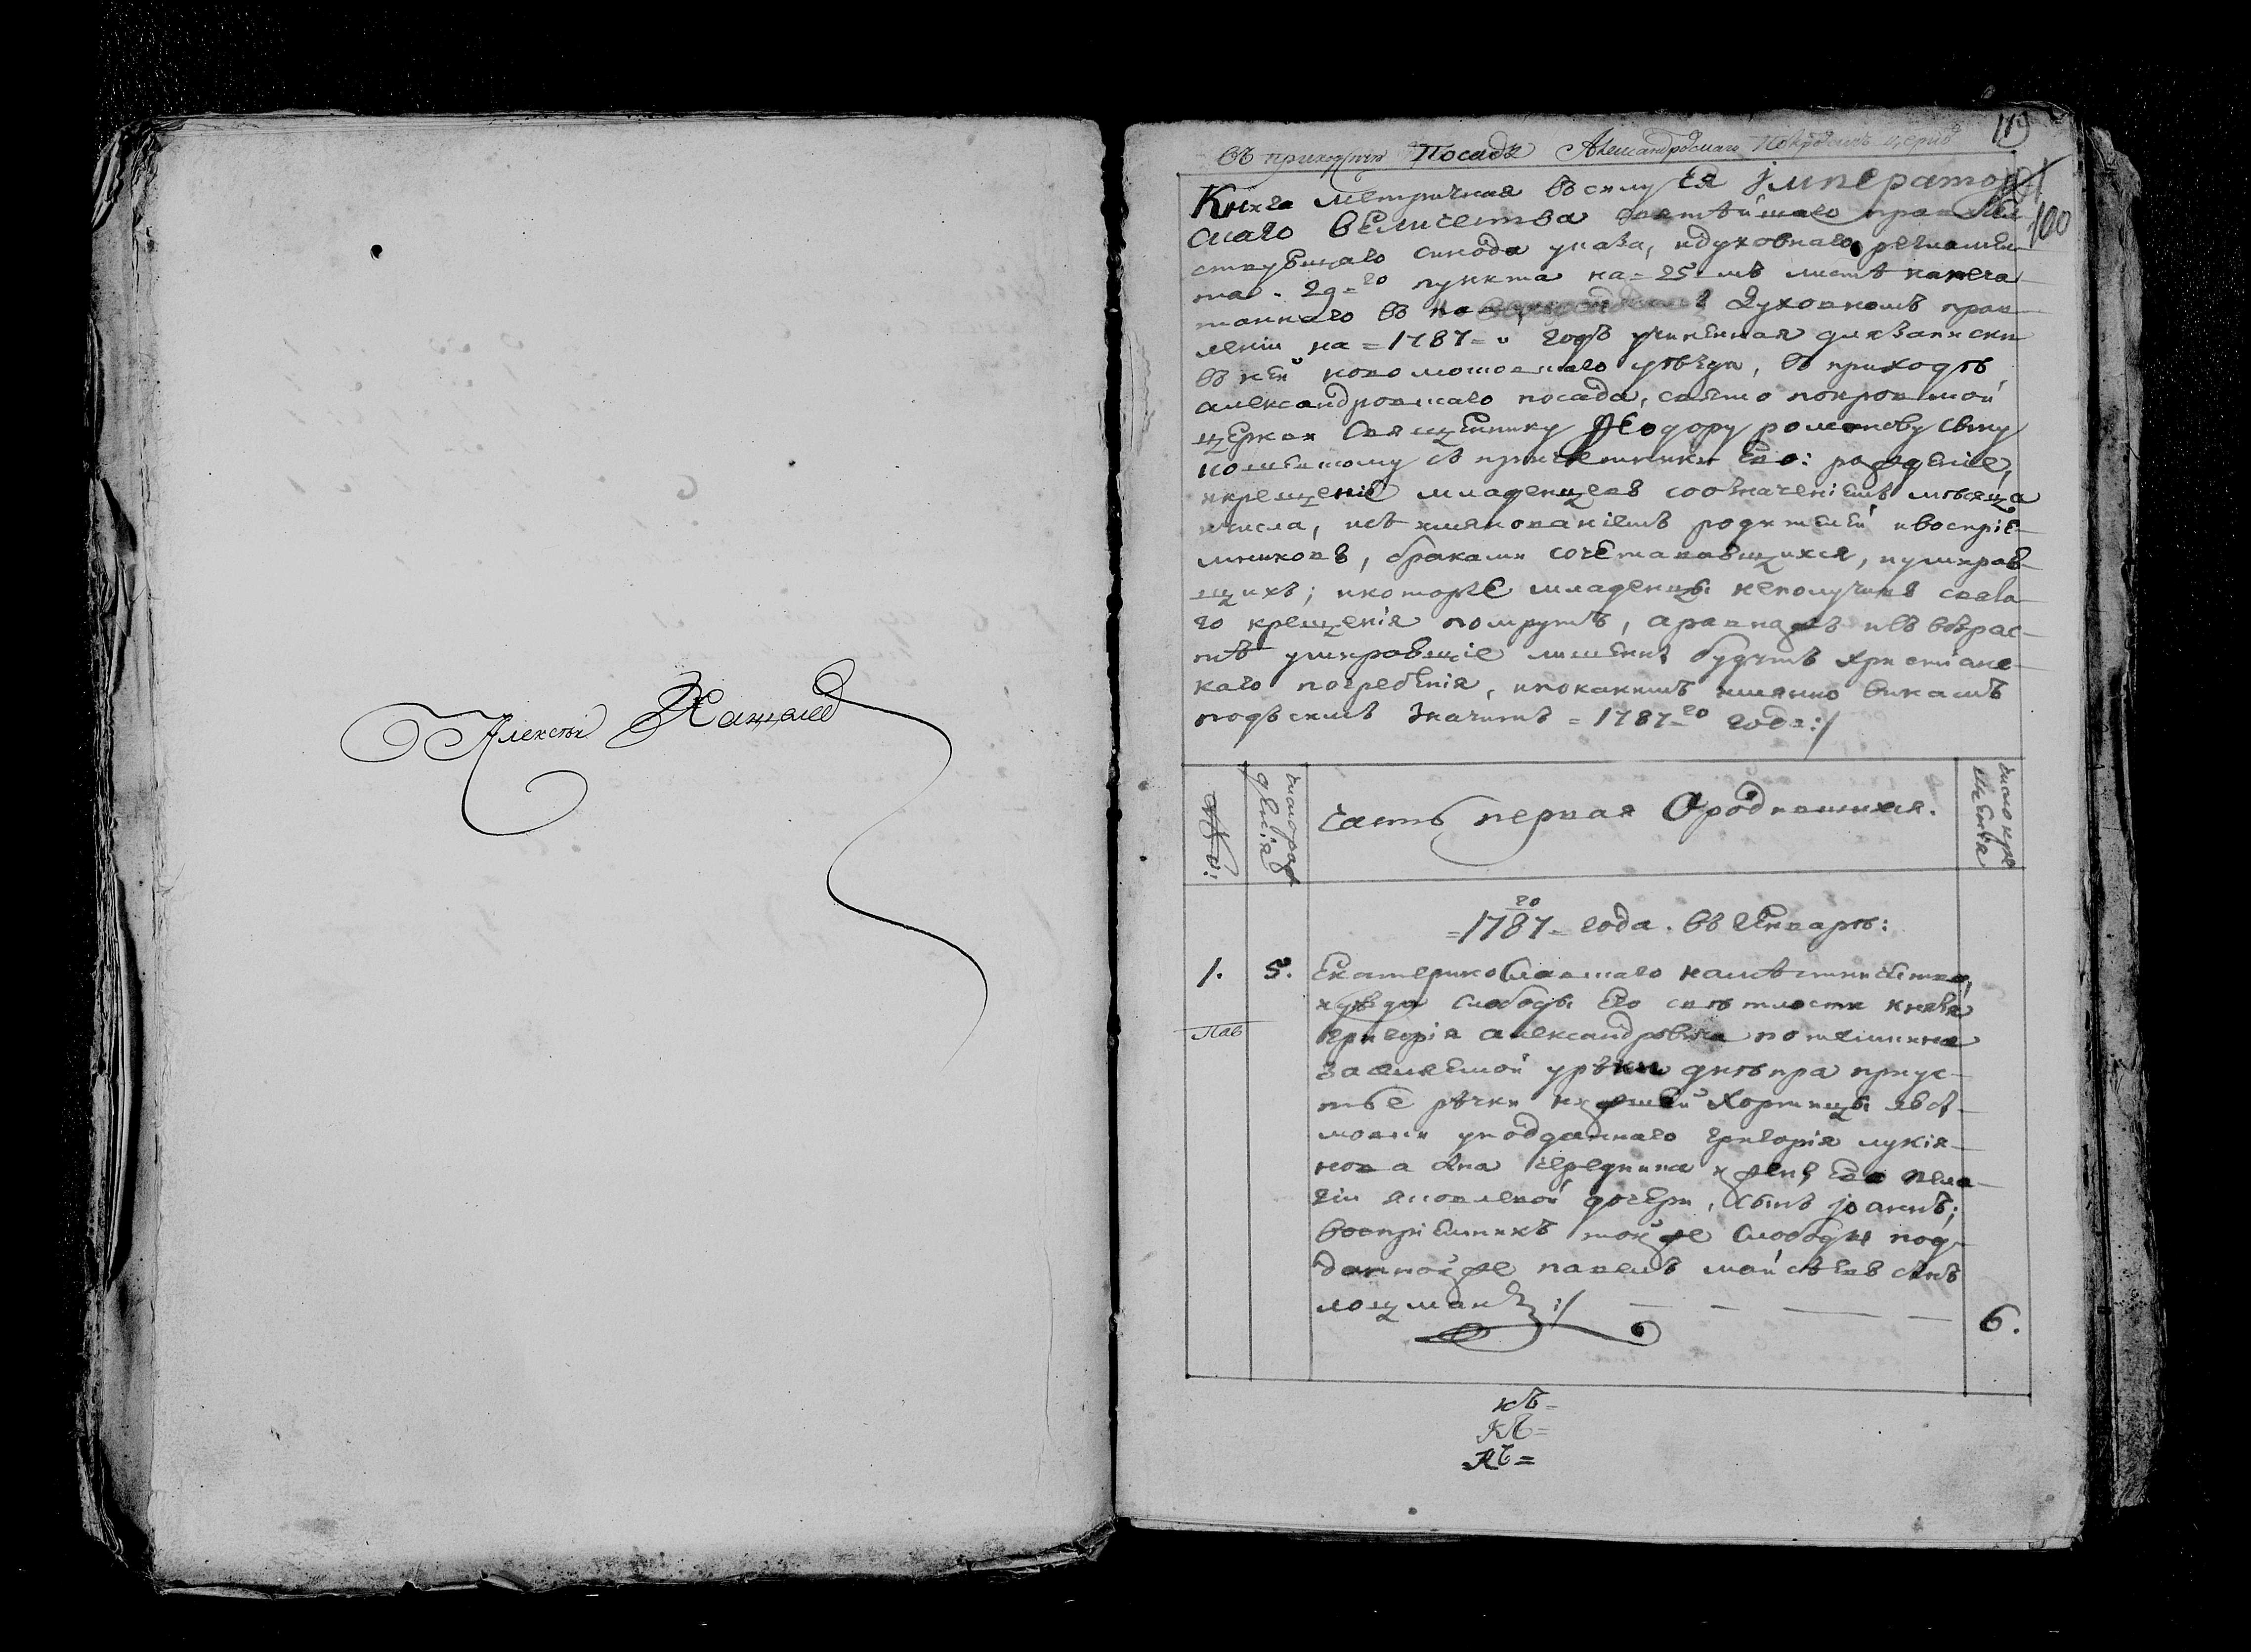 Алексѣй
119
въ приходѣ Посада Александровскаго Покровской церкви
Книга метричная въ силу Ея Императорс
скаго Величества святѣйшаго правител
100
ствующаго синода указа, и духовнаго регламен
та - 29-го пункта на - 25-мъ листѣ напеча
таннаго въ духовномъ прав
леніи на = 1787 = й годъ учиненная для записки
въ ней новомосковскаго уѣзда, въ приходѣ
александровскаго посада, свято покровской
церкви священнику Феодору романову сыну
съ причетники Его: рожденіе,
и крещеніе младенцевъ созначеніемъ мѣсяца
и числа, исъ имянованіемъ родителей и воспріе-
мниковъ, браками сочетававшихся, и умирав-
щихъ; и которые младенцы неполучивъ свята
го крещенія помрутъ, аравнажъ и въ возрас-
тѣ умиравшіе лишены будутъ христіанс-
каго погребенія, и по какимъ имянно винамъ
подъ симъ значитъ = 1787-го года:/
число рож
денія
Часть первая О родившихся.
число кре
щенія
=1787-го года. въ Генварѣ:
1. 5. Екатеринославскаго намѣстничества,
и уѣзда слободы Его свѣтлости князя
Пав
григорія александровича потемкина
уреки днѣпра приус-
тье рѣчки нижшей Хортицы
уподданнаго григорія лукія-
нова сна середника и жены Его пела-
гіи яковлевой дочери, сынъ іоаннъ;
воспріемникъ тойже слободы под-
данной же павелъ мойсѣевъ сынъ
лоцманъ :/ 6.
къ=
къ=
къ=